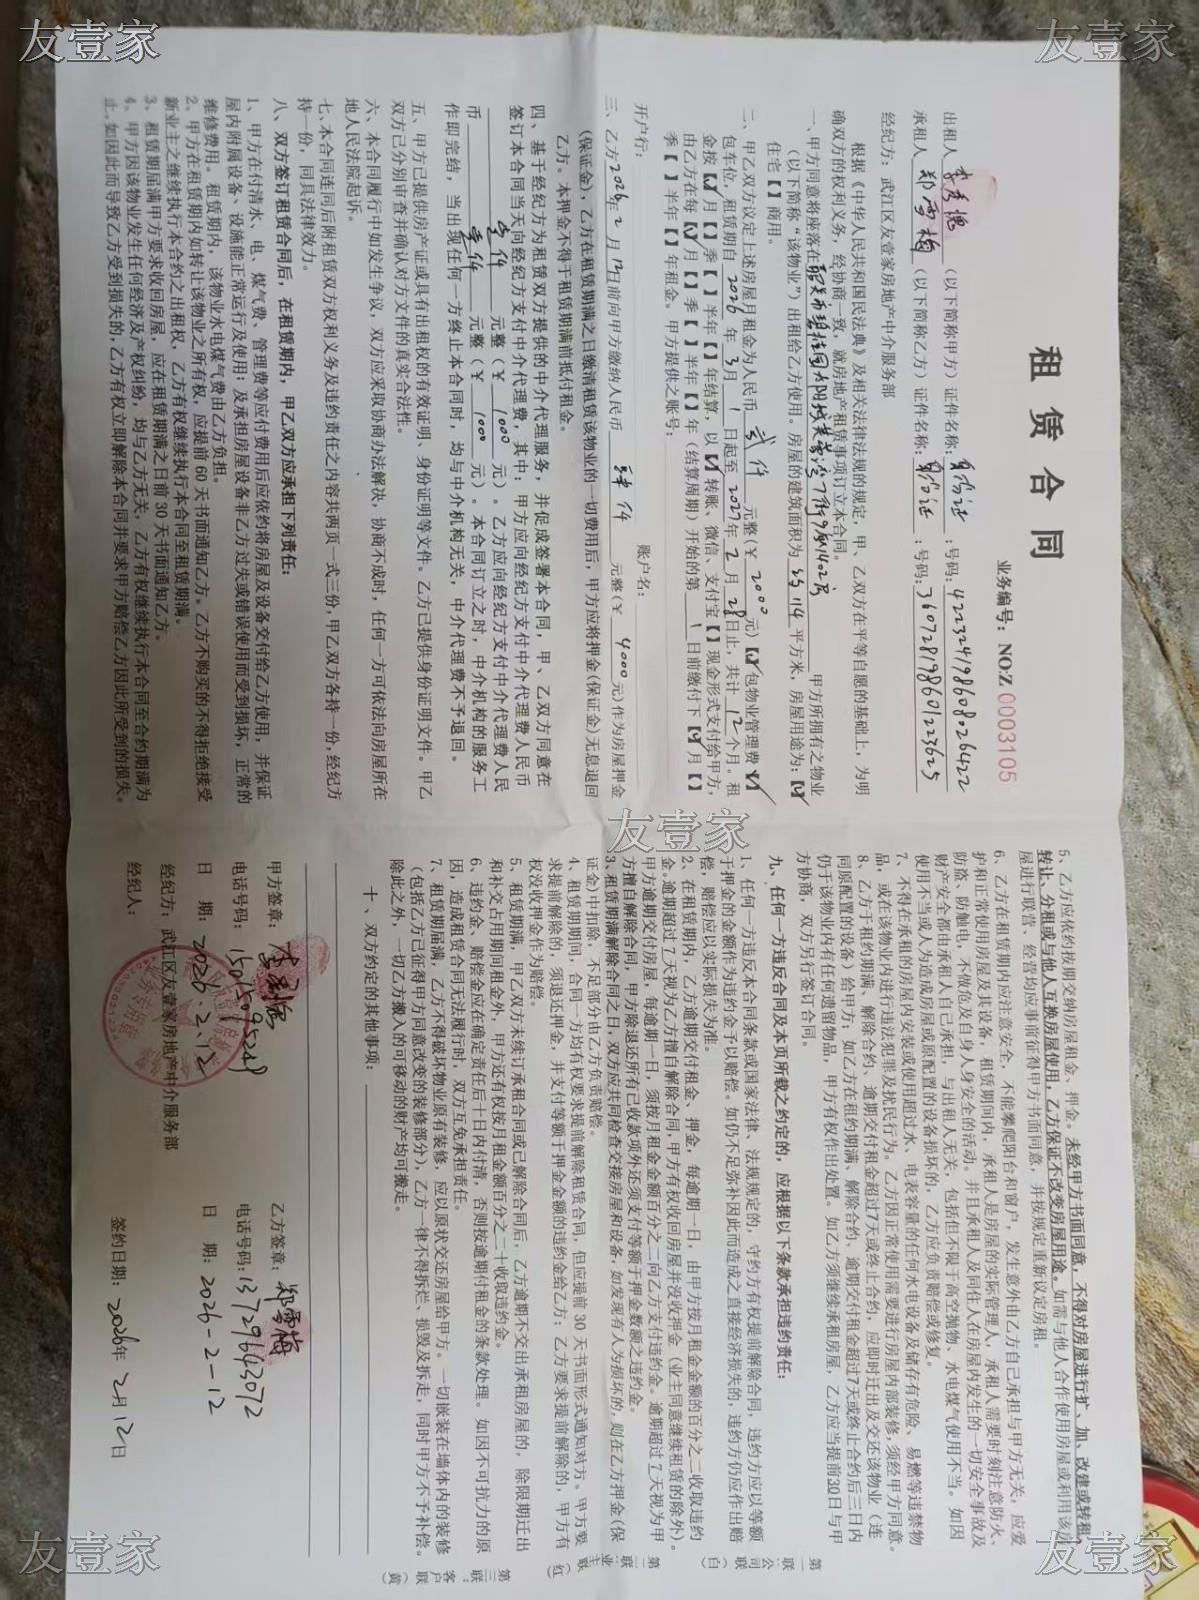 友壹家
友壹家
租赁合同
业务编号：NO:Z 0003105
出租人 （以下简称甲方）证件名称：身份证：号码：422324198608026422
承租人 郑雪梅 （以下简称乙方）证件名称：身份证：号码：360728198601223625
经纪方：武江区友壹家房地产中介服务部
根据《中华人民共和国民法典》及相关法律法规的规定，甲、乙双方在平等自愿的基础上，为明
确双方的权利义务，经协商一致，就房地产租赁事项订立本合同。
一、甲方同意将座落在韶关市碧桂园 1402房 甲方所拥有之物业
（以下简称“该物业”）出租给乙方使用。房屋的建筑面积为 114 平方米，房屋用途为：【✓】
住宅【 】商用。
二、甲乙双方议定上述房屋月租金为人民币 贰仟 元整（￥ 2000 元）【✓】包物业管理费【✓】
包车位，租赁期自 2026 年 3月 1 日起至 2027年 2 月 28日止，共计 12个月。租
金按【✓】月【 】季【 】半年【 】年结算，以【✓】转账、微信、支付宝【 】现金形式支付给甲方，
由乙方在每【✓】月【 】季【 】半年【 】年（结算周期）开始的第 1 日前缴付下【✓】月【 】
季【 】半年【 】年租金。甲方提供之账号：
开户行： 账户名：
三、乙方2026年 2 月 12日前向甲方缴纳人民币 肆仟 元整（￥ 4000 元）作为房屋押金
（保证金），乙方在租赁期满之日缴清租赁该物业的一切费用后，甲方应将押金（保证金）无息退回
乙方。本押金不得于租赁期满前抵付租金。
四、基于经纪方为租赁双方提供的中介代理服务，并促成签署本合同，甲、乙双方同意在
签订本合同当天向经纪方支付中介代理费，其中：甲方应向经纪方支付中介代理费人民币
壹仟 元整（￥ 1000 元）。乙方应向经纪方支付中介代理费人民
币 壹仟 元整（￥ 1000 元）。本合同订立之时，中介机构的服务工
作即完结，当出现任何一方终止本合同时，均与中介机构无关，中介代理费不予退回。
五、甲方已提供房产证或具有出租权的有效证明、身份证明等文件。乙方已提供身份证明文件。甲乙
双方已分别审查并确认对方文件的真实合法性。
六、本合同履行中如发生争议，双方应采取协商办法解决，协商不成时，任何一方可依法向房屋所在
地人民法院起诉。
七、本合同连同后附租赁双方权利义务及违约责任之内容共两页一式三份，甲乙双方各持一份，经纪方
持一份，同具法律效力。
八、双方签订租赁合同后，在租赁期内，甲乙双方应承担下列责任：
1、甲方在付清水、电、煤气费、管理费等应付费用后应依约将房屋及设备交付给乙方使用，并保证
屋内附属设备、设施能正常运行及使用；及承担房屋设备非乙方过失或错误使用而受到损坏，正常的
维修费用。租赁期内，该物业水电煤气费由乙方负担。
2、甲方在租赁期内如转让该物业之所有权，应提前 60 天书面通知乙方。乙方不购买的不得拒绝接受
新业主之继续执行本合约之出租权，乙方有权继续执行本合同至租赁期满。
3、租赁期届满甲方要求收回房屋，应在租赁期满之日前 30 天书面通知乙方。
4、甲方因该物业发生任何经济及产权纠纷，均与乙方无关，乙方有权继续执行本合同至合约期满为
止。如因此而导致乙方受到损失的，乙方有权立即解除本合同并要求甲方赔偿乙方因此所受到的损失。
友壹家
5、乙方应依约按期交纳房屋租金、押金。未经甲方书面同意，不得对房屋进行扩、加、改建或转租、
转让、分租或与他人互换房屋使用，乙方保证不改变房屋用途。如需与他人合作使用房屋或利用该房
屋进行联营，经营均应事前征得甲方书面同意，并按规定重新议定房租。
6、乙方在租赁期内应注意安全，不能攀爬阳台和窗户，发生意外由乙方自己承担与甲方无关，应爱
护和正常使用房屋及其设备，租赁期间内，承租人是房屋的实际管理人，承租人需要时刻注意防火、
防盗、防触电，不做危及自身人身安全的活动。并且承租人及同住人在房屋内发生的一切安全事故及
财产安全都由承租人自己承担，与出租人无关，包括但不限于高空抛物、水电煤气使用不当。如因
使用不当或人为造成房屋或原配置的设备损坏的，乙方应负责赔偿或修复。
7、不得在承租的房屋内安装或使用超过水、电表容量的任何水电设备及储存有危险、易燃等违禁物
品，或在该物业内进行违法犯罪及扰民行为。乙方因正常使用需要进行房屋内部装修，须经甲方同意。
8、乙方于租约期满、解除合约、逾期交付租金超过7天或终止合约，应即时迁出及交还该物业（连
同原配置的设备）给甲方；如乙方在租约期满、解除合约、逾期交付租金超过7天或终止合约后三日内
仍于该物业内有任何遗留物品，甲方有权作出处置。如乙方须继续承租房屋，乙方应当提前30日与甲
方协商，双方另行签订合同。
九、任何一方违反合同及本页所载之约定的，应根据以下条款承担违约责任：
1、任何一方违反本合同条款或国家法律、法规规定的，守约方有权提前解除合同，违约方应以等额
于押金的金额作为违约金予以赔偿。如仍不足弥补因此而造成之直接经济损失的，违约方仍应作出赔
偿，赔偿应以实际损失为准。
2、在租赁期内，乙方逾期交付租金、押金，每逾期一日，由甲方按月租金金额的百分之二收取违约
金。逾期超过 7天视为乙方擅自解除合同，甲方有权收回房屋并没收押金（业主同意继续租赁的除外）。
甲方逾期交付房屋，每逾期一日，须按月租金金额百分之二向乙方支付违约金。逾期超过 7 天视为甲
方擅自解除合同，甲方除退还所有已收款项外还须支付等额于押金数额之违约金。
3、租赁期满解除合同之日，双方应共同检查交接房屋和设备，如发现有人为损坏的，则在乙方押金（保
证金）中扣除，不足部分由乙方负责赔偿。
4、租赁期期间，合同一方均有权要求提前解除租赁合同，但应提前 30 天书面形式通知对方。甲方要
求提前解除的，须退还押金，并支付等额于押金金额的违约金给乙方；乙方要求提前解除的，甲方有
权没收押金作为赔偿。
5、租赁期满，甲乙双方未续订承租合同或已解除合同后，乙方逾期不交出承租房屋的，除限期迁出
和补交占用期间租金外，甲方还有权按月租金额百分之二十收取违约金。
6、违约金、赔偿金应在确定责任后十日内付清，否则按逾期付租金的条款处理。如因不可抗力的原
因，造成租赁合同无法履行时，双方互免承担责任。
7、租赁期届满，乙方不得破坏物业原有装修，应以原状交还房屋给甲方。一切嵌装在墙体内的装修
（包括乙方已征得甲方同意改变的装修部分），乙方一律不得拆烂、损毁及拆走，同时甲方不予补偿。
除此之外，一切乙方搬入的可移动的财产均可搬走。
十、双方约定的其他事项：
甲方签章： 乙方签章：郑雪梅
电话号码：15015095248 电话号码：13729643072
日 期：2026.2.12 日 期：2026-2-12
经纪方：武江区友壹家房地产中介服务部
经纪人： 签约日期：2026年 2月 12日
第一联：公司（白） 第二联：业主（红） 第三联：客户（黄）
友壹家
友壹家